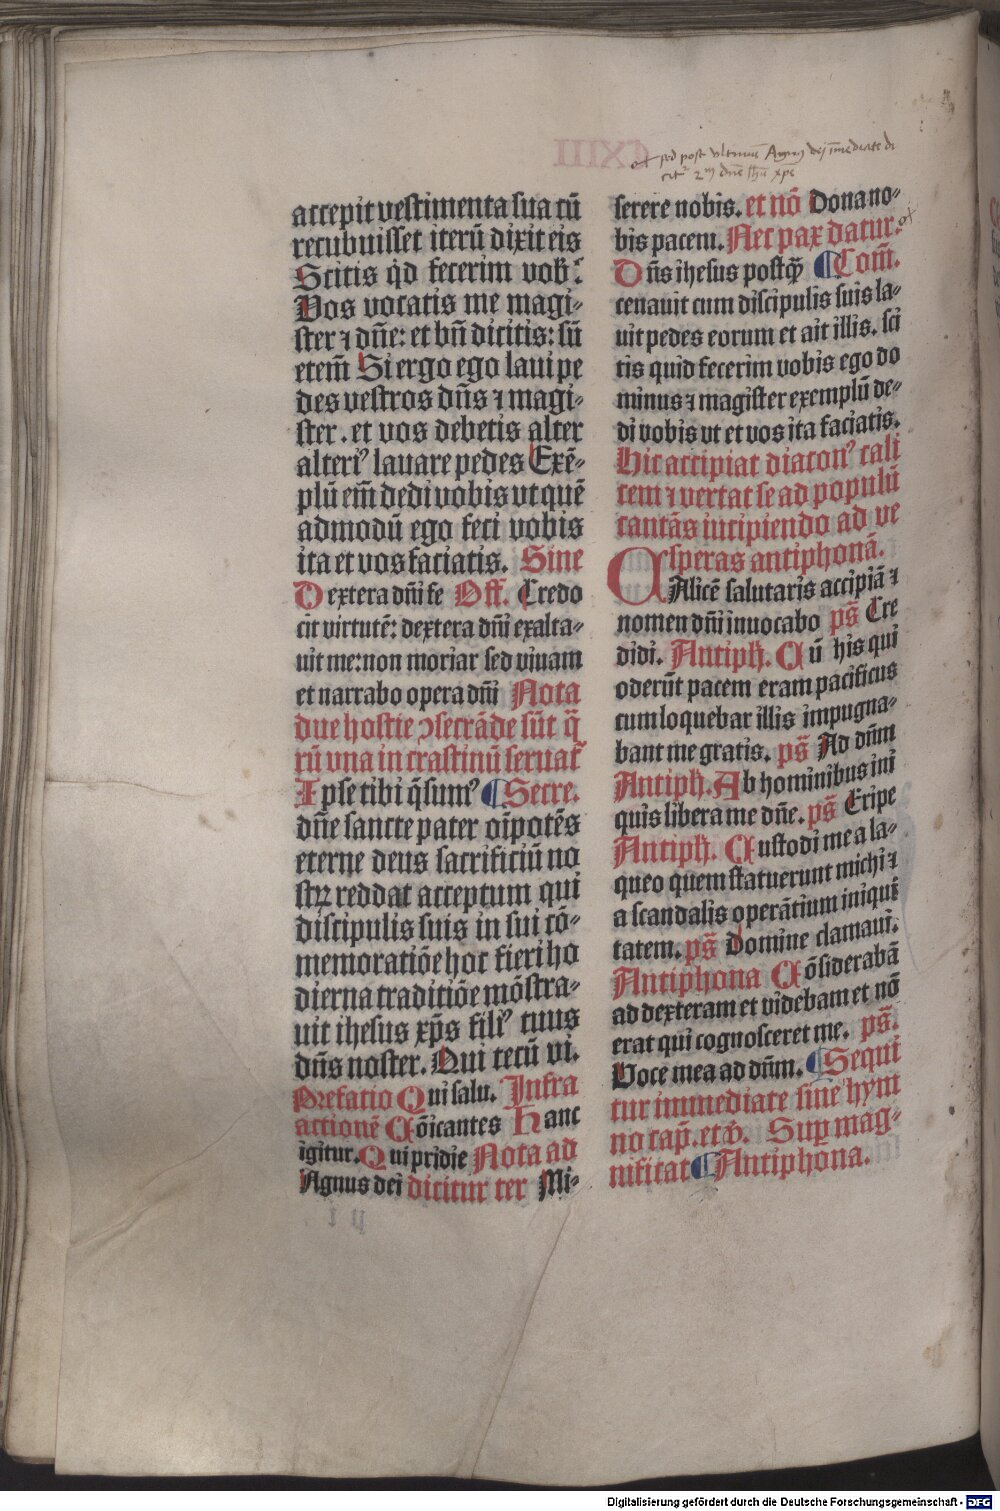 sed post ultimum Agnus dei immediate di
accepit vestimenta sua cū
recubuisset iterū dixit eis
Scitis qd fecerim vob̄
Vos vocatis me magi-
ster ⁊ dn̄e: et bn̄ dicitis: sū
etem̄ Si ergo ego lavi pe
des vestros dn̄s ⁊ magi-
ster. et vos debetis alter
alteriꝰ lavare pedes Exē-
plū em̄ dedi vobis ut quē
admodū ego feci vobis
ita et vos faciatis. Sine
Dextera dn̄i fe Off. Credo
cit virtutē: dextera dn̄i exalta-
uit me: non moriar sed vivam
et narrabo opera dn̄i Nota
due hostie ꝯsecrāde sūt q̄
rū una in crastinū servat᷑
Ipse tibi q̄sumꝰ Secre.
dn̄e sancte pater oīpotēs
eterne deus sacrificiū no
stꝝ reddat acceptum qui
discipulis suis in sui cō-
memoratiōe hoc fieri ho
dierna traditiōe mōstra-
uit ihesus xp̄s filiꝰ tuus
dn̄s noster. Qui tecū vi.
Prefatio Qui salu. Infra
actionē Cōicantes Hanc
igitur. Qui pridie Nota ad
Agnus dei dicitur ter Mi-
serere nobis. et nō Dona no-
bis pacem. Nec pax datur.
Dn̄s ihesus postꝙ̄ Com̄.
cenavit cum discipulis suis la-
uit pedes eorum et ait illis. sci
tis quid fecerim vobis ego do
minus ⁊ magister exemplū de-
di vobis ut et vos ita faciatis.
Hic accipiat diaconꝰ cali
cem ⁊ vertat se ad populū
cantās incipiendo ad ve
speras antiphonā.
Calicē salutaris accipiā ⁊
nomen dn̄i invocabo ps̄ Cre
didi. Antiph. Cū his qui
oderūt pacem eram pacificus
cum loquebar illis impugna-
bant me gratis. ps̄ Ad dn̄m
Antiph. Ab hominibus ini
quis libera me dn̄e. ps̄ Eripe
Antiph. Custodi me a la-
queo quem statuerunt michi ⁊
a scandalis operātium iniqui
tatem. ps̄ Domine clamavi.
Antiphona Cōsiderabā
ad dexteram et videbam et nō
erat qui cognosceret me. ps̄.
Voce mea ad dn̄m. Sequi
tur immediate sine hym
no cap̄. et ꝟ. Sup̄ mag-
nificat Antiphona.
Digitalisierung gefördert durch die Deutsche Forschungsgemeinschaft - DFG